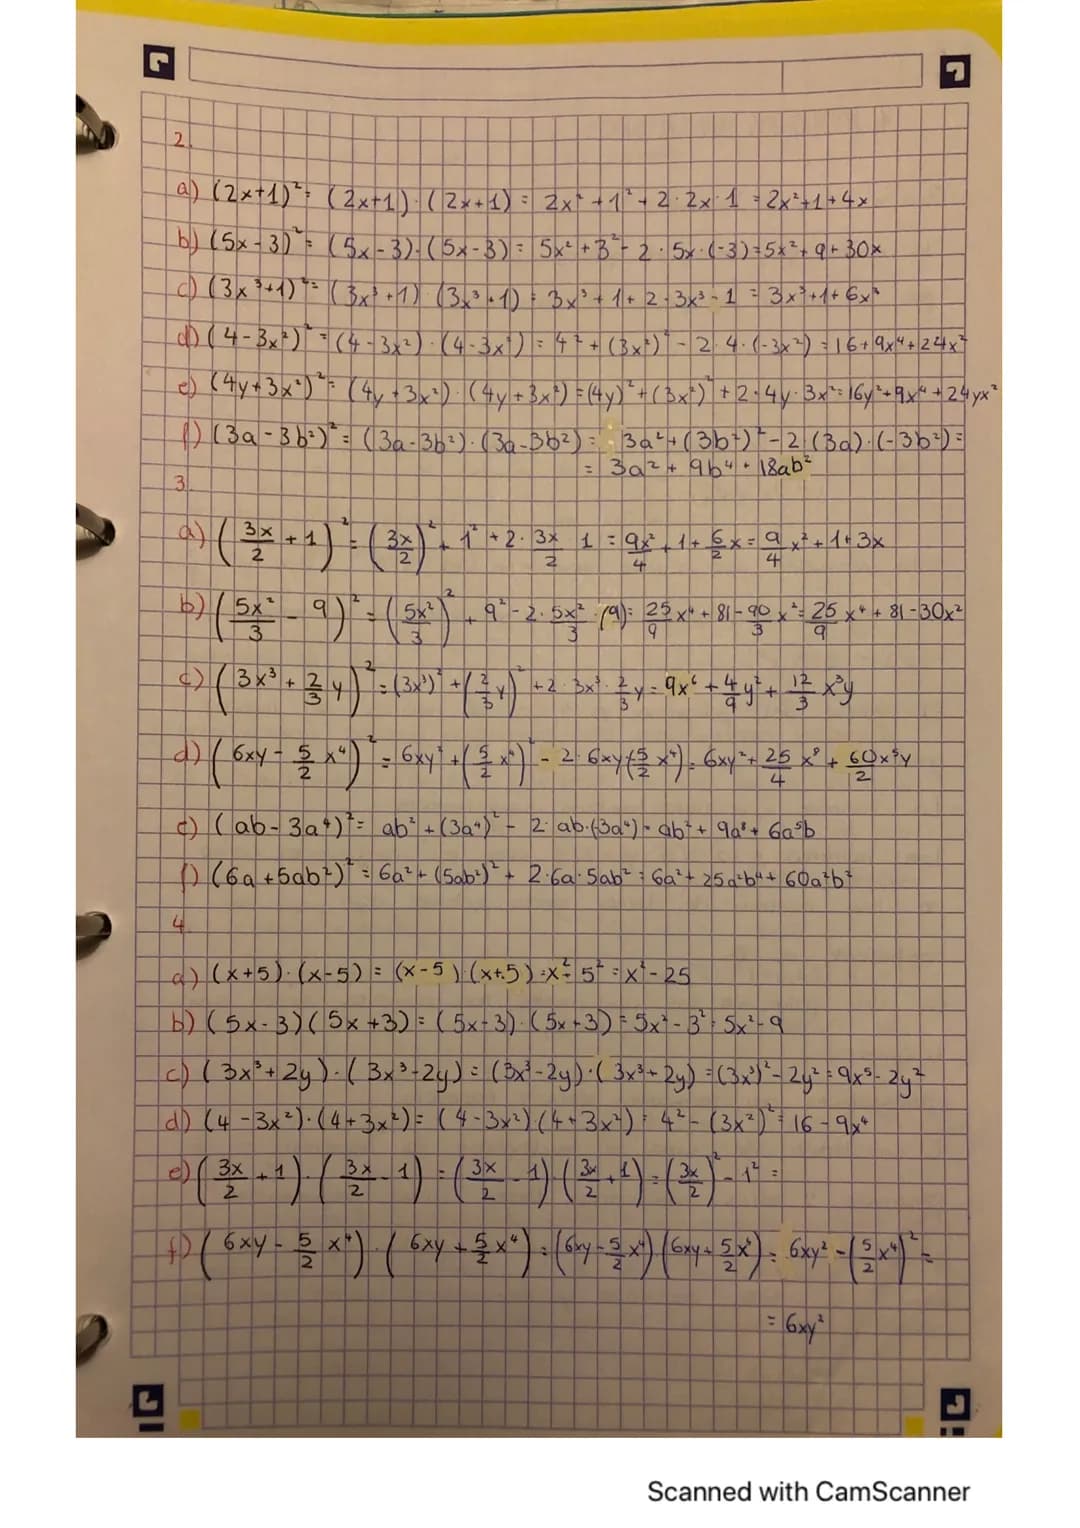 2.
a) (2x+1)² = (2x+1)·(2x+1) = 2x² + 1² + 2·2x·1 = 2x²+1+4x
b) (5x-3)² = (5x-3)·(5x-3) = 5x² + 3² - 2·5x·(-3) = 5x²+9+30x
c) (3x³+1)² = (3x³+1)·(3x³+1) = 3x³ + 1 + 2·3x³·1 = 3x³+1+6x³
d) (4-3x²)² = (4-3x²)·(4-3x²) = 4² + (3x²)² - 2·4·(-3x²) = 16+9x⁴+24x²
e) (4y+3x²)² = (4y+3x²)·(4y+3x²) = (4y)² + (3x²)² + 2·4y·3x² = 16y²+9x⁴+24yx²
f) (3a-3b²)² = (3a-3b²)·(3a-3b²) = 3a² + (3b²)² - 2(3a)·(-3b²) =
= 3a² + 9b⁴ + 18ab²
3.
a) (3x/2 + 1)² = (3x/2)² + 1² + 2·3x/2·1 = 9x²/4 + 1 + 6/2 x = 9/4 x² + 1 + 3x
b) (5x²/3 - 9)² = (5x²/3)² + 9² - 2·5x²/3·(9) = 25/9 x⁴ + 81 - 90/3 x² = 25/9 x⁴ + 81 - 30x²
c) (3x³ + 2/3 y)² = (3x³)² + (2/3 y)² + 2·3x³·2/3 y = 9x⁶ + 4/9 y² + 12/3 x³y
d) (6xy - 5/2 x⁴)² = 6xy² + (5/2 x⁴)² - 2·6xy(-5/2 x⁴) = 6xy² + 25/4 x⁸ + 60x⁵y/2
e) (ab - 3a⁴)² = ab² + (3a⁴)² - 2·ab·(-3a⁴) = ab² + 9a⁸ + 6a⁵b
f) (6a+5ab²)² = 6a² + (5ab²)² + 2·6a·5ab² = 6a² + 25a²b⁴ + 60a²b²
4.
a) (x+5)·(x-5) = (x-5)·(x+5) = x² - 5² = x² - 25
b) (5x-3)(5x+3) = (5x-3)·(5x+3) = 5x² - 3² = 5x² - 9
c) (3x³+2y)·(3x³-2y) = (3x³-2y)·(3x³+2y) = (3x³)² - 2y² = 9x⁵ - 2y²
d) (4-3x²)·(4+3x²) = (4-3x²)(4+3x²) = 4² - (3x²)² = 16 - 9x⁴
e) (3x/2 + 1)·(3x/2 - 1) = (3x/2 - 1)(3x/2 + 1) = (3x/2)² - 1² =
f) (6xy - 5/2 x⁴)·(6xy + 5/2 x⁴) = (6xy - 5/2 x⁴)(6xy + 5/2 x⁴) = 6xy² - (5/2 x⁴)² =
= 6xy²
Scanned with CamScanner